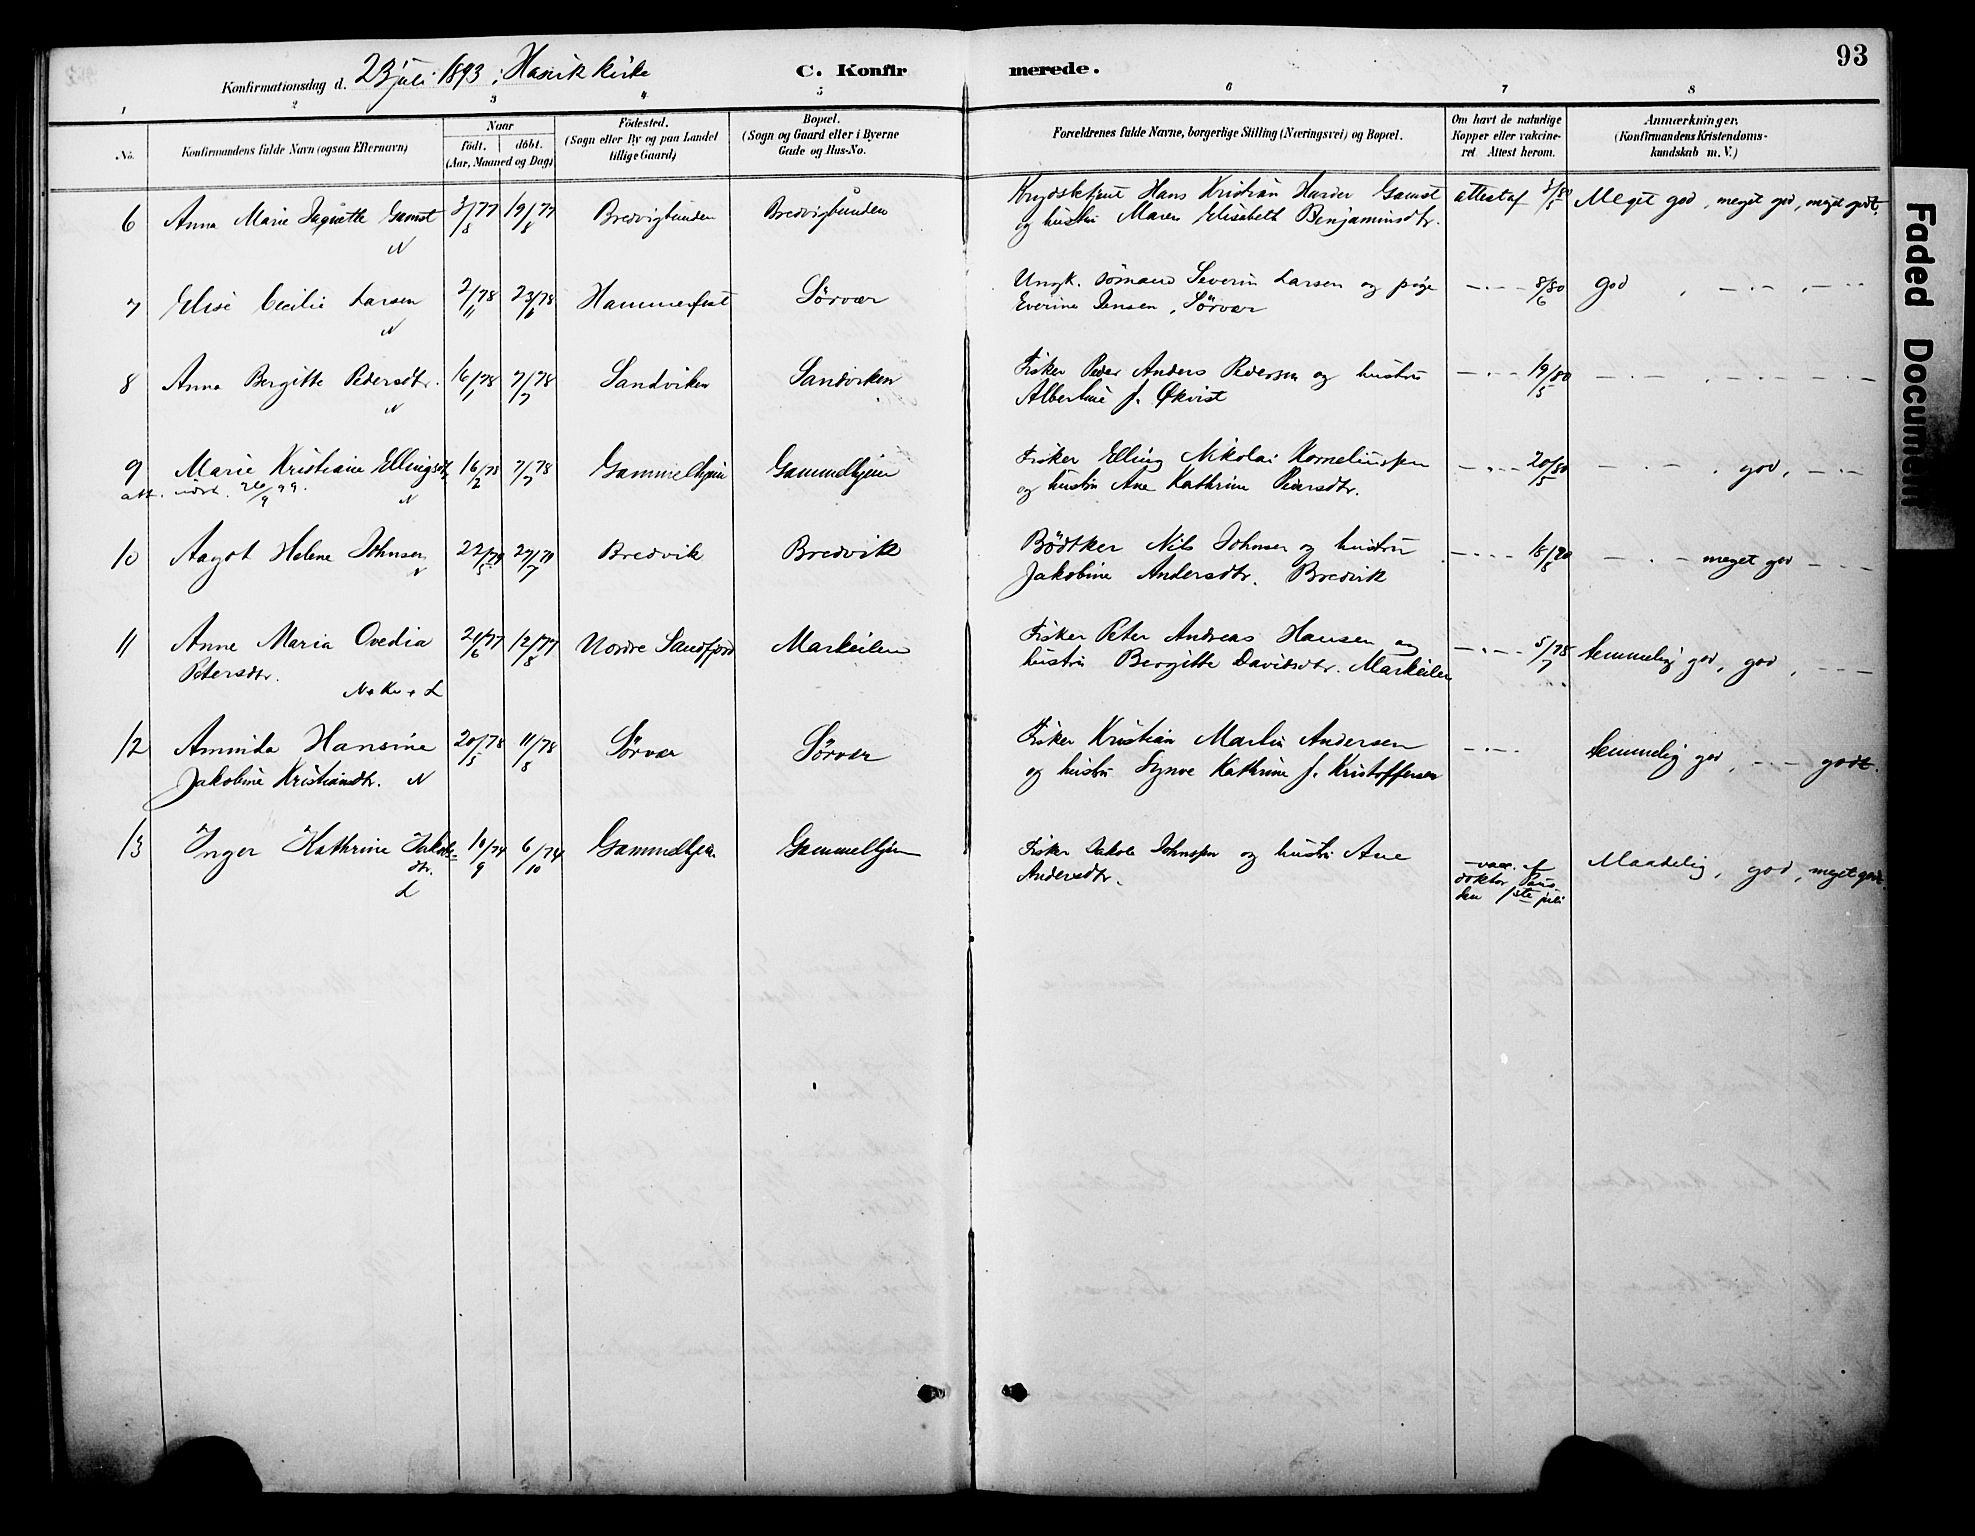 93
Konfirmationsdag d. 23 juli 1893 i Hasvik kirke
C. Konfirmerede.
1 2 3 4 5 6 7 8
No.
Konfirmandens fulde Navn (ogsaa Efternavn)
Naar
født. døbt.
(Aar, Maaned og Dag)
Fødested.
(Sogn eller By og paa Landet
tillige Gaard)
Bopæl.
(Sogn og Gaard eller i Byerne
Gade og Hus-No.
Forældrenes fulde Navne, borgerlige Stilling (Næringsvei) og Bopæl.
Om havt de naturlige
Kopper eller vakcine-
ret Attest herom.
Anmærkninger.
(Konfirmandens Kristendoms-
kundskab m. V.)
6 Anna Marie Gamst 3/8 77 19/8 77 Bredvigbunden Bredvigbunden Hans Kristian Harder Gamst attest af Meget god, meget god, meget godt.
N og hustru Maren Elisabeth Benjaminsdtr.
7 Elise Cecilie Larsen 2/11 78 23/6 78 Hammerfest Sørvær Ungk. sømand Severin Larsen og pige — . — 8/6 80 god , — . — , — . —
N Everine Jensen, Sørvær
8 Anna Bergitte Pedersdtr. 16/1 78 7/7 78 Sandviken Sandviken Fisker Peder Anders Pedersen og hustru — . — 19/5 80 — . — , — . — — . —
N Albertine f. Økvist
9 Marie Kristiane Ellingsdtr. 16/2 78 7/7 78 Gammelhjem Gammelhjem Fisker Elling Nikolai Korneliussen — . — 20/5 80 — . — , god, — . —
att. udst. 26/9 99. N og hustru Ane Kathrine Pedersdtr.
10 Aagot Helene Johnsen 22/5 78 27/7 78 Bredvik Bredvik Bødtker Nils Johnsen og hustru — . — — . — meget god — . —
N Jakobine Andersdtr. Bredvik
11 Anne Maria Ovedia 24/6 77 12/8 77 Nordre Sandfjord Markeilen Fisker Peter Andreas Hansen og — . — 5/7 78 temmelig god, god, — . —
Petersdtr. hustru Bergitte Davidsdtr. Markeilen
N + Kv + L
12 Hansine 20/5 78 11/8 78 Sørvær Sørvær Fisker Kristian Martin Andersen — . — temmelig god, — . — godt.
Jakobine Kristiansdtr. N og hustru Synve Kathrine f. Kristoffersen
13 Inger Kathrine Jakobs- 16/9 74 6/10 74 Gammelhjem Gammelhjem Fisker Jakob Johnsen og hustru Ane vacc. af Maadelig, god, meget godt
dtr. Andersdtr. doktor
L den 1ste juli
Faded Document